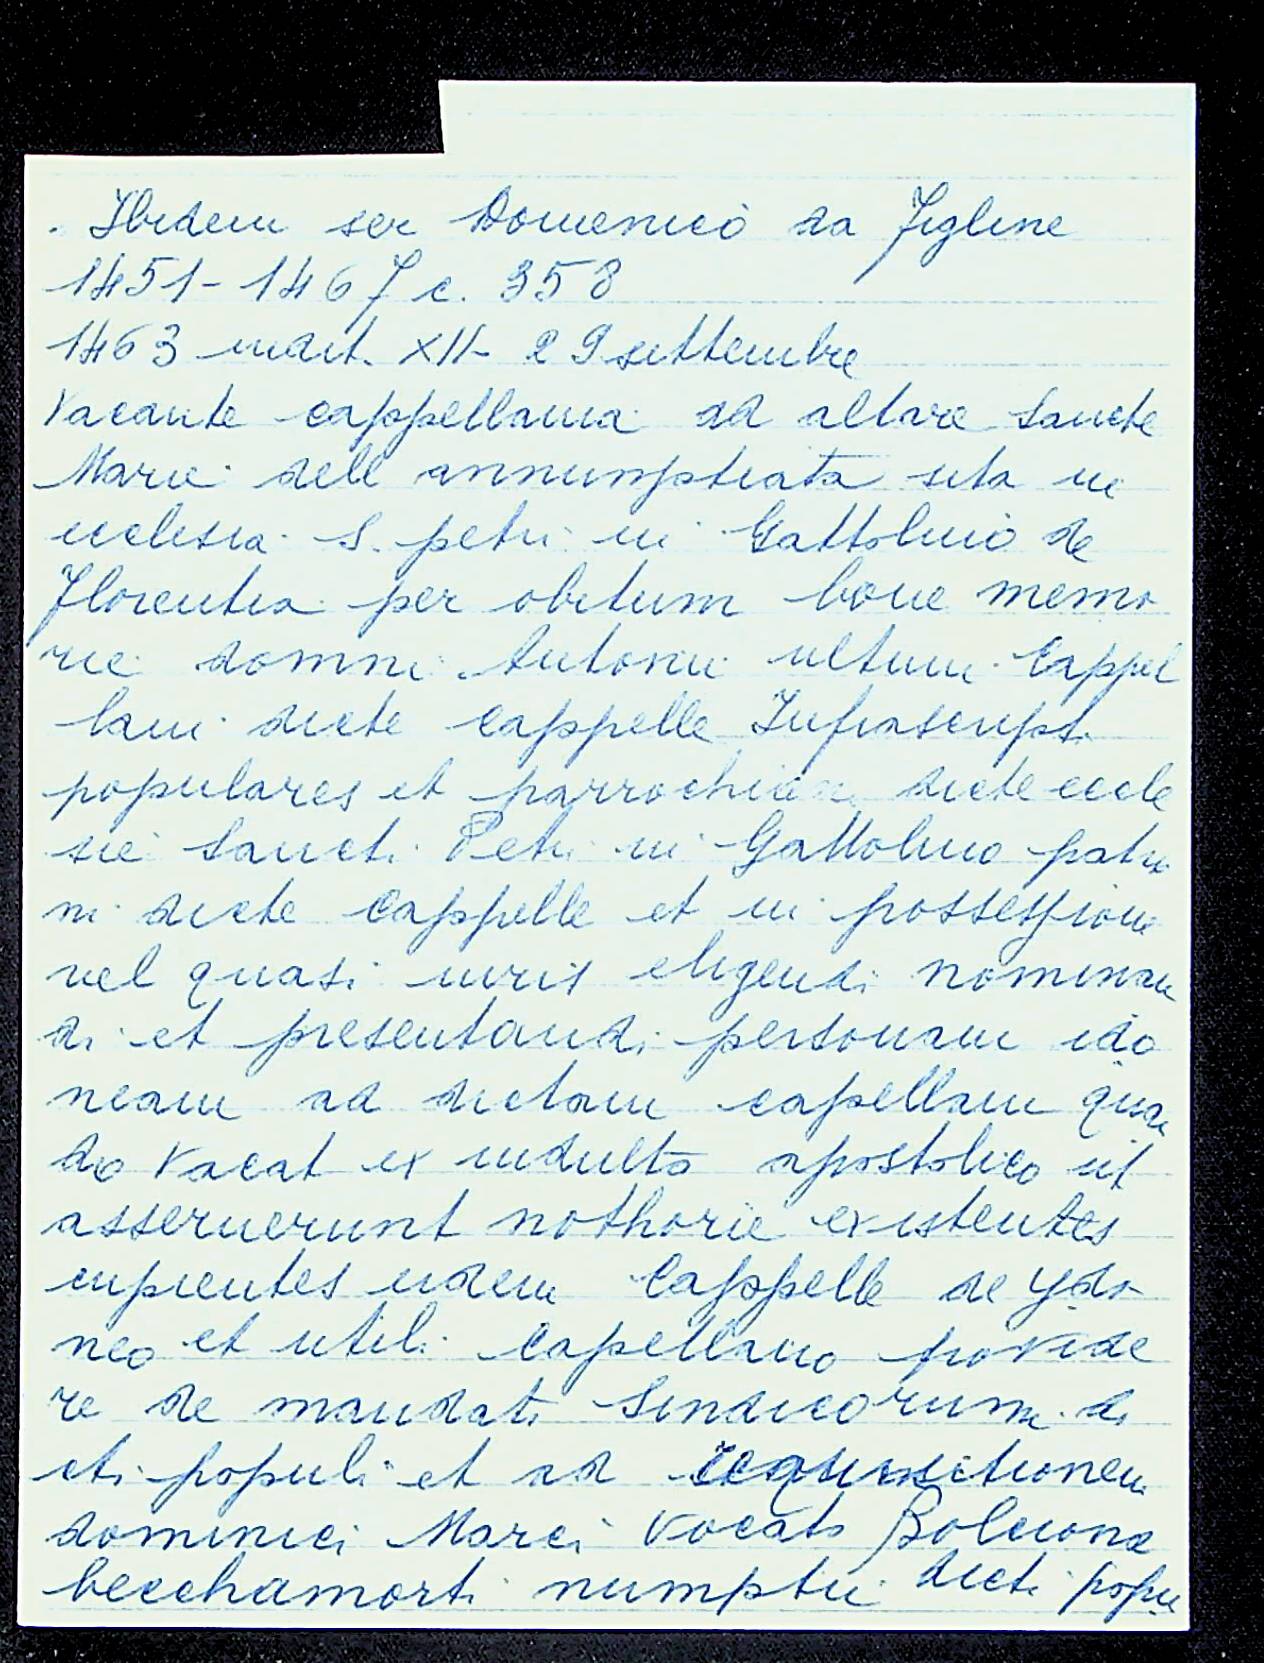 . Ibidem ser Domenico da Figline
1451-1467 c. 358
1463 indit. XII- 29 settembre
Vacante cappellania ad altare Sancte
Marie dell annumptiata sita in
ecclesia S. petri in Gattolino de
Florentia per obitum bone memo
rie domni Antonii ultimi Cappel
lani dicte Cappelle Infrascripti
populares et parrochiani dicte eccle
sie Sancti Petri in Gattolino patro
ni dicte Cappelle et in possessione
vel quasi iuris eligendi nominan
di et presentandi personam ido
neam ad dictam capellam quan
do vacat ex indulto apostolico ut
asseruerunt nothorie existentes
cupientes eidem Cappelle de ydo
neo et utili Capellano provide
re de mandati Sindicorum di
cti populi et ad requisitionem
dominici Marci Vocato Bolcione
becchamorti numptii dicti popu